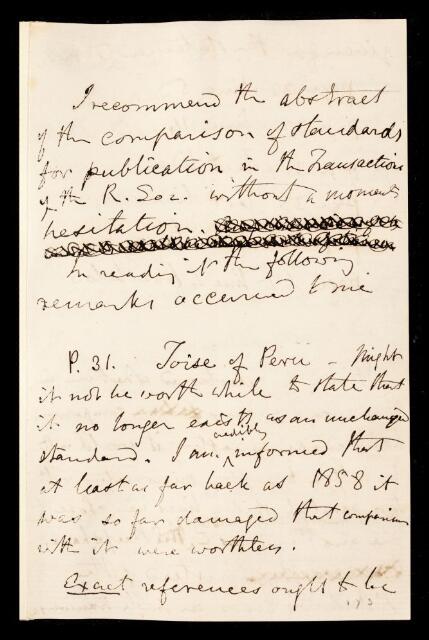 I recommend the abstract
of the comparison of standards
for publication in the Transactions
of the R. Soc. without a moments
hesitation.
In reading it the following
remarks occurred to me
P. 31. Toise of Peru – Might
it not be worth while to state that
it no longer exists as an unchanged
credibly
standard. I am ‸ informed that
at least as far back as 1858 it
was so far damaged that comparisons
with it were worthless.
Exact references ought to be
173